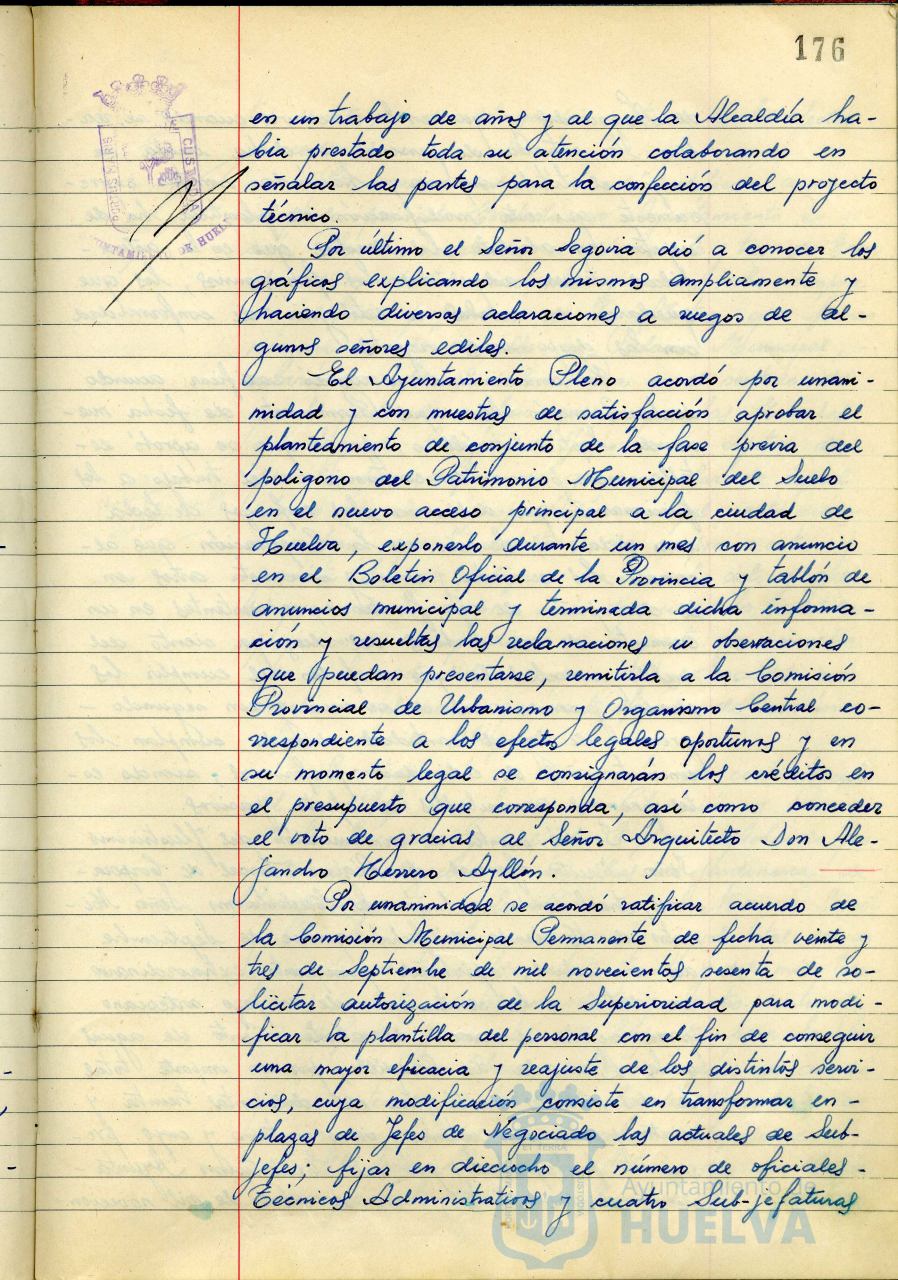 176
en un trabajo de años y al que la Alcaldía ha-
bia prestado toda su atención colaborando en
señalar las partes para la confección del proyecto
técnico.
Por último el Señor Segovia dió a conocer los
gráficos explicando los mismos ampliamente y
haciendo diversas aclaraciones a ruegos de al-
gunos señores ediles.
El Ayuntamiento Pleno acordó por unani-
midad y con muestras de satisfacción aprobar el
planteamiento de conjunto de la fase previa del
poligono del Patrimonio Municipal del Suelo
en el nuevo acceso principal a la ciudad de
Huelva, exponerlo durante un mes con anuncio
en el Boletin Oficial de la Provincia y tablón de
anuncios municipal y terminada dicha informa-
ción y resueltas las reclamaciones u
que puedan presentarse, remitirla a la Comisión
Provincial de Urbanismo y Organismo Central co-
rrespondiente a los efectos legales oportunos y en
su momento legal se consignarán los créditos en
el presupuesto que corresponda, así como conceder
el voto de gracias al Señor Arquitecto Don Ale-
jandro Herrero Ayllón.
Por unanimidad se acordó ratificar acuerdo de
la Comisión Municipal Permanente de fecha veinte y
tres de Septiembre de mil novecientos sesenta de so-
licitar autorización de la Superioridad para modi-
ficar la plantilla del personal con el fin de conseguir
una mayor eficacia y reajuste de los distintos servi-
cios, cuya modificación consiste en transformar en-
plazas de Jefes de Negociado las actuales de Sub-
jefes; fijar en dieciocho el número de oficiales-
Técnicos Administrativos y cuatro Sub-jefaturas
Ayuntamiento de
HUELVA